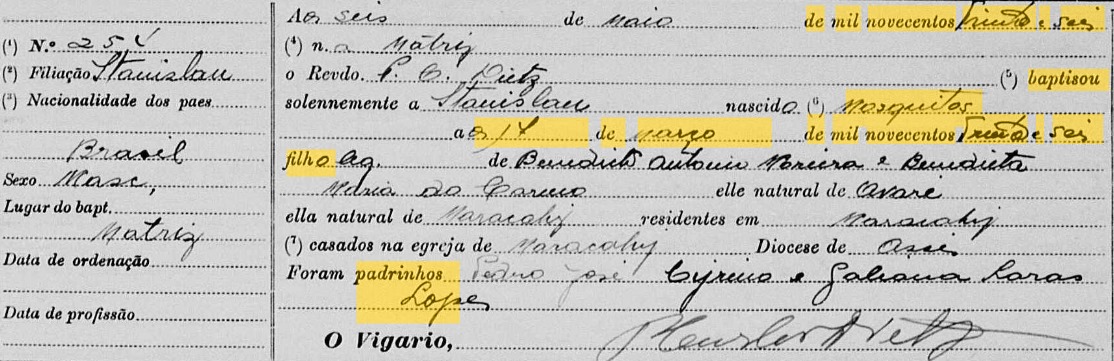 (¹) N.º 254
(²) Filiação Stanislau
(³) Nacionalidade dos paes
Brasil
Sexo Masc,
Lugar do bapt.
Matriz
Data de ordenação
Data de profissão
Aos seis de Maio de mil novecentos trinta e seis
(⁴) n. a Matriz
o Revdo. P. C. Dietz (⁵) baptisou
solennemente a Stanislau nascido (⁶) Mosquitos
a os 14 de março de mil novecentos trinta e seis
filho leg. de Benedicto Antonio Moreira e Benedicta
Maria do Carmo elle natural de Avaré
ella natural de Maracahy residentes em Maracahy
(⁷) casados na egreja de Maracahy Diocese de Assis
Foram padrinhos Pedro José Cyrino e Galiana Laras
Lopes
O Vigario, Dietz